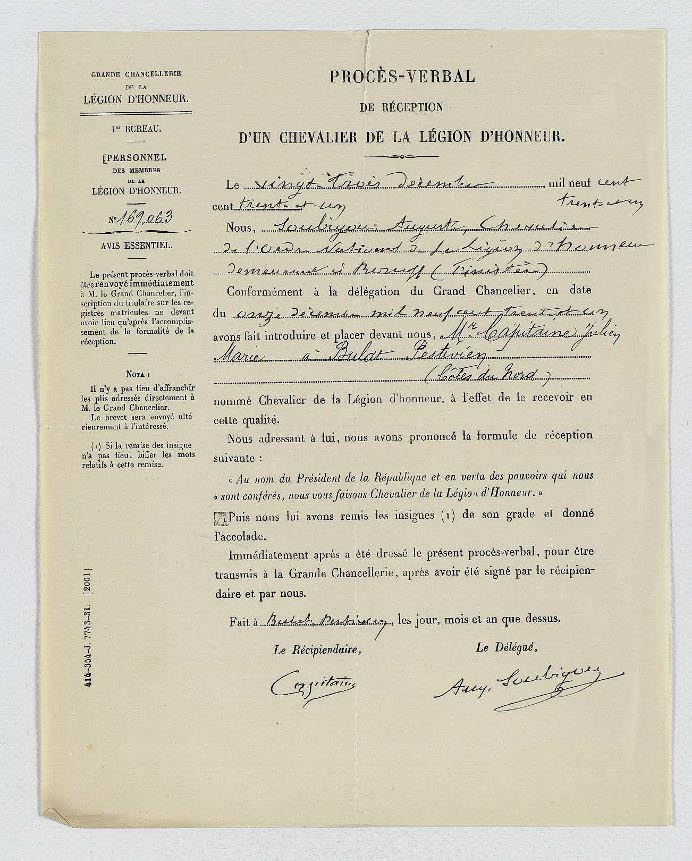 GRANDE CHANCELLERIE
DE LA
LÉGION D'HONNEUR.
1er BUREAU.
PERSONNEL
DES MEMBRES
DE LA
LÉGION D'HONNEUR.
N° 169,063
AVIS ESSENTIEL.
Le présent procès-verbal doit
être renvoyé immédiatement
à M. le Grand Chancelier, l'ins-
cription du titulaire sur les re-
gistres matricules ne devant
avoir lieu qu'après l'accomplis-
sement de la formalité de la
réception.
NOTA :
Il n'y a pas lieu d'affranchir
les plis adressés directement à
M. le Grand Chancelier.
Le brevet sera envoyé ulté
rieurement à l'intéressé.
(1) Si la remise des insignes
n'a pas lieu, biffer les mots
relatifs à cette remise.
414-354-J. 7743-31. [2001]
PROCÈS-VERBAL
DE RÉCEPTION
D'UN CHEVALIER DE LA LÉGION D'HONNEUR.
Le vingt trois décembre mil neuf cent
cent trente et un trente et un
Nous, Soubigou Auguste, Chevalier
de l'Ordre National de la Légion d'honneur
demeurant à (Finistère)
Conformément à la délégation du Grand Chancelier, en date
du onze décembre mil neuf cent trente et un
avons fait introduire et placer devant nous, Mr Capitaine Julien
Marie à Bulat-Pestivien
(Côtes du Nord)
nommé Chevalier de la Légion d'honneur, à l'effet de le recevoir en
cette qualité.
Nous adressant à lui, nous avons prononcé la formule de réception
suivante :
« Au nom du Président de la République et en vertu des pouvoirs qui nous
« sont conférés, nous vous faisons Chevalier de la Légion d'Honneur. »
Puis nous lui avons remis les insignes (1) de son grade et donné
l'accolade.
Immédiatement après a été dressé le présent procès-verbal, pour être
transmis à la Grande Chancellerie, après avoir été signé par le récipien-
daire et par nous.
Fait à Bulat-Pestivien, les jour, mois et an que dessus.
Le Récipiendaire, Le Délégué,
Capitaine Aug. Soubigou